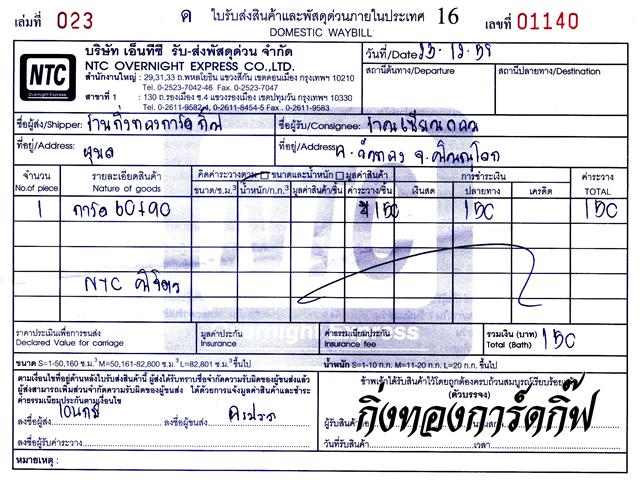 เล่มที่ 023 ค ใบรับส่งสินค้าและพัสดุด่วนภายในประเทศ 16 เลขที่ 01140
DOMESTIC WAYBILL
NTC
Overnight Express
บริษัท เอ็นทีซี รับ-ส่งพัสดุด่วน จำกัด
NTC OVERNIGHT EXPRESS CO.,LTD.
สำนักงานใหญ่ : 29,31,33 ถ.พหลโยธิน แขวงสีกัน เขตดอนเมือง กรุงเทพฯ 10210
Tel. 0-2523-7042-46 Fax. 0-2523-7047
สาขาที่ 1 : 130 ถ.รองเมือง ซ.4 แขวงรองเมือง เขตปทุมวัน กรุงเทพฯ 10330
Tel. 0-2611-9582-4, 0-2611-8454-5 Fax. 0-2611-9583
วันที่/Date
สถานีต้นทาง/Departure สถานีปลายทาง/Destination
ชื่อผู้ส่ง/Shipper: ร้านกิ่งทองการ์ดกิฟ ชื่อผู้รับ/Consignee:
ที่อยู่/Address: ที่อยู่/Address: จ.พิษณุโลก
จำนวน รายละเอียดสินค้า คิดค่าระวางตาม ขนาดและน้ำหนัก มูลค่าสินค้า การชำระเงิน ค่าระวาง
No.of piece Nature of goods ขนาด/ซ.ม.³ น้ำหนัก/ก.ก.³ มูลค่าสินค้า/ชิ้น ค่าระวาง/ชิ้น เงินสด ปลายทาง เครดิต TOTAL
1 การ์ด 60+90 150 150 150
NTC
ราคาประเมินเพื่อการขนส่ง มูลค่าประกัน ค่าธรรมเนียมประกัน รวมเงิน (บาท) 150
Declared Value for carriage Insurance Insurance fee Total (Bath)
ขนาด S=1-50,160 ซ.ม.³ M=50,161-82,800 ซ.ม.³ L=82,801 ซ.ม.³ ขึ้นไป น้ำหนัก S=1-10 ก.ก. M=11-20 ก.ก. L=20 ก.ก. ขึ้นไป
ตามเงื่อนไขที่อยู่ด้านหลังใบรับส่งสินค้านี้ ผู้ส่งได้รับทราบข้อจำกัดความรับผิดของผู้ขนส่งแล้ว
ผู้ส่งสามารถเพิ่มส่วนจำกัดความรับผิดของผู้ขนส่ง ได้ด้วยการแจ้งมูลค่าสินค้าและชำระ
ค่าธรรมเนียมประกันตามเงื่อนไข
ข้าพเจ้าได้รับสินค้าไว้โดยถูกต้องครบถ้วนสมบูรณ์เรียบร้อยแล้ว
(ตัวบรรจง)
กิ่งทองการ์ดกิ๊ฟ
ลงชื่อผู้ส่ง ลงชื่อผู้ขนส่ง
ลงชื่อผู้รับค่าระวาง วันที่รับสินค้า เวลา
หมายเหตุ :